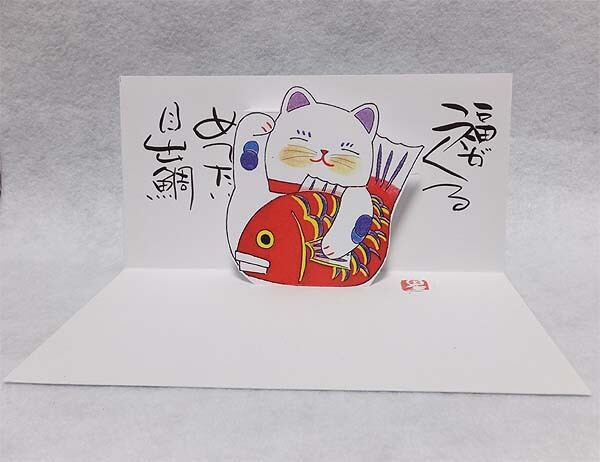 福が
くる
めでたい
目出鯛